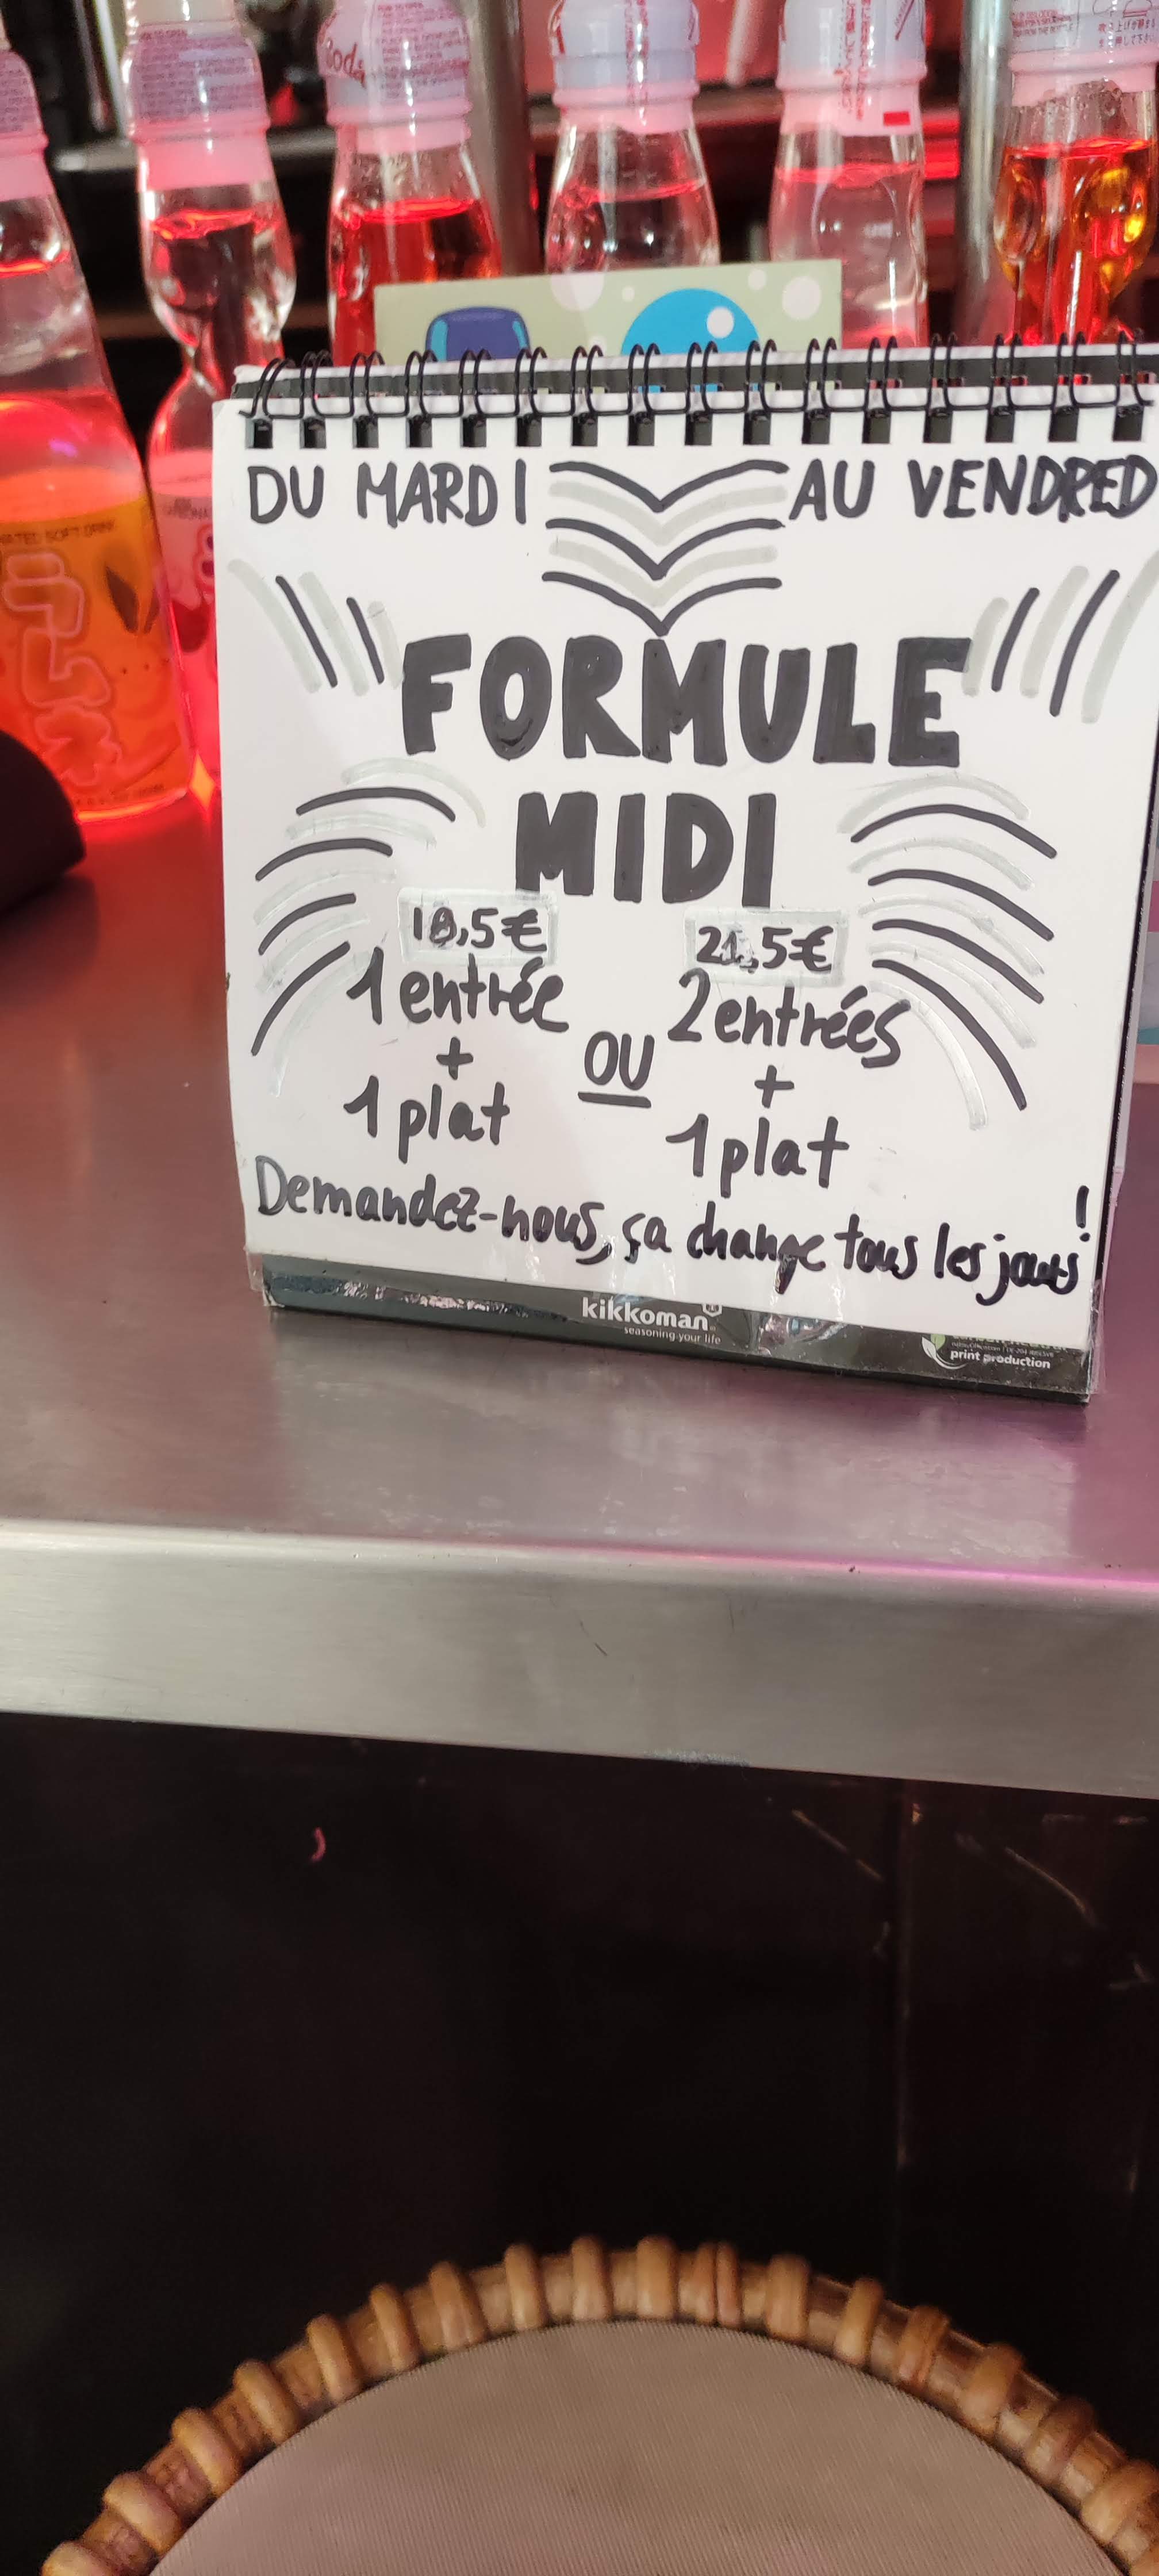 DU MARDI AU VENDRED
FORMULE
MIDI
18,5€
1 entrée
+
1 plat
OU
21,5€
2 entrées
+
1 plat
Demandez-nous, ça change tous les jours !
kikkoman
seasoning your life
print production